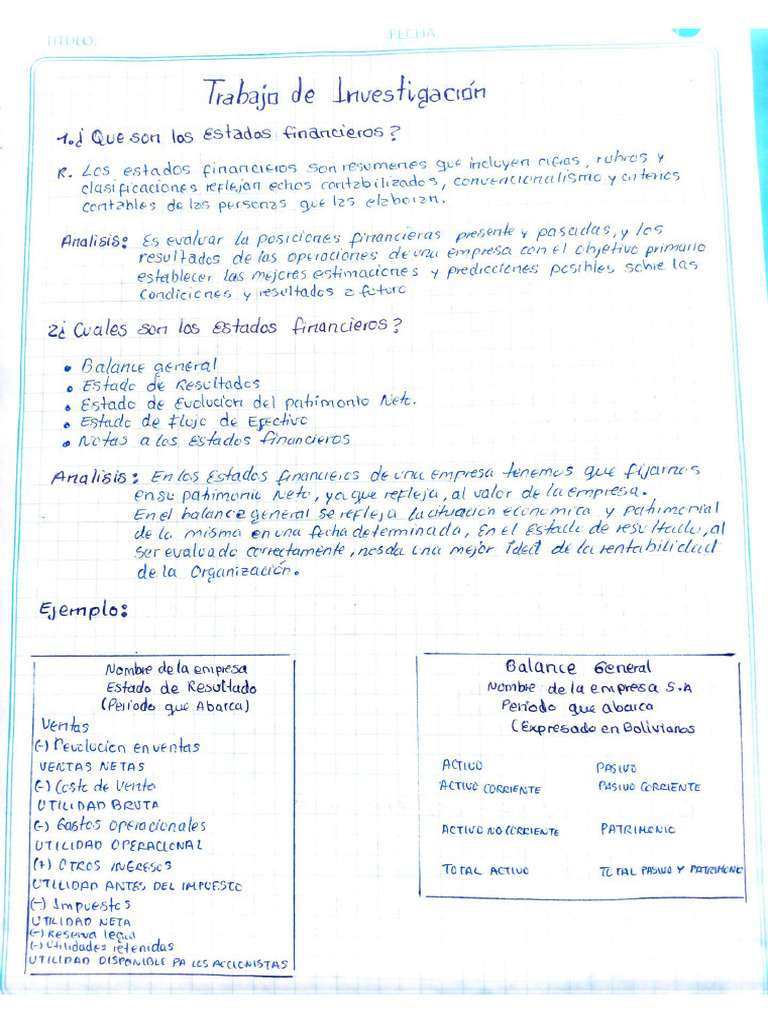 TITULO:
FECHA:
Trabajo de Investigación
1.¿ Que son los Estados financieros?
R. Los estados financieros son resumenes que incluyen cifras, rubros y
clasificaciones reflejan echos contabilizados, convencionalismo y criterios
contables de las personas que las elaboran.
Analisis: Es evaluar la posiciones financieras presente y pasadas, y los
resultados de las operaciones de una empresa con el objetivo primario
establecer las mejores estimaciones y predicciones posibles sobre las
condiciones y resultados a futuro
2¿ Cuales son los Estados financieros?
• Balance general
• Estado de Resultados
• Estado de Evolucion del patrimonio Neto.
• Estado de Flujo de Efectivo
• Notas a los Estados financieros
Analisis: En los Estados financieros de una empresa tenemos que fijarnos
en su patrimonio Neto, ya que refleja, al valor de la empresa.
En el balance general se refleja la situación economica y patrimonial
de la misma en una fecha determinada, En el Estado de resultado, al
ser evaluado correctamente, nos da una mejor idea de la rentabilidad
de la Organización.
Ejemplo:
Nombre de la empresa
Estado de Resultado
(Periodo que Abarca)
Ventas
(-) Devolucion en ventas
VENTAS NETAS
(-) Costo de Venta
UTILIDAD BRUTA
(-) Gastos Operacionales
UTILIDAD OPERACIONAL
(+) OTROS INGRESOS
UTILIDAD ANTES DEL IMPUESTO
(-) Impuestos
UTILIDAD NETA
(-) Reserva legal
(-) Utilidades retenidas
UTILIDAD DISPONIBLE PA LOS ACCIONISTAS
Balance General
Nombre de la empresa S.A
Periodo que abarca
(Expresado en Bolivianos
ACTIVO PASIVO
ACTIVO CORRIENTE PASIVO CORRIENTE
ACTIVO NO CORRIENTE PATRIMONIO
TOTAL ACTIVO TOTAL PASIVO Y PATRIMONIO